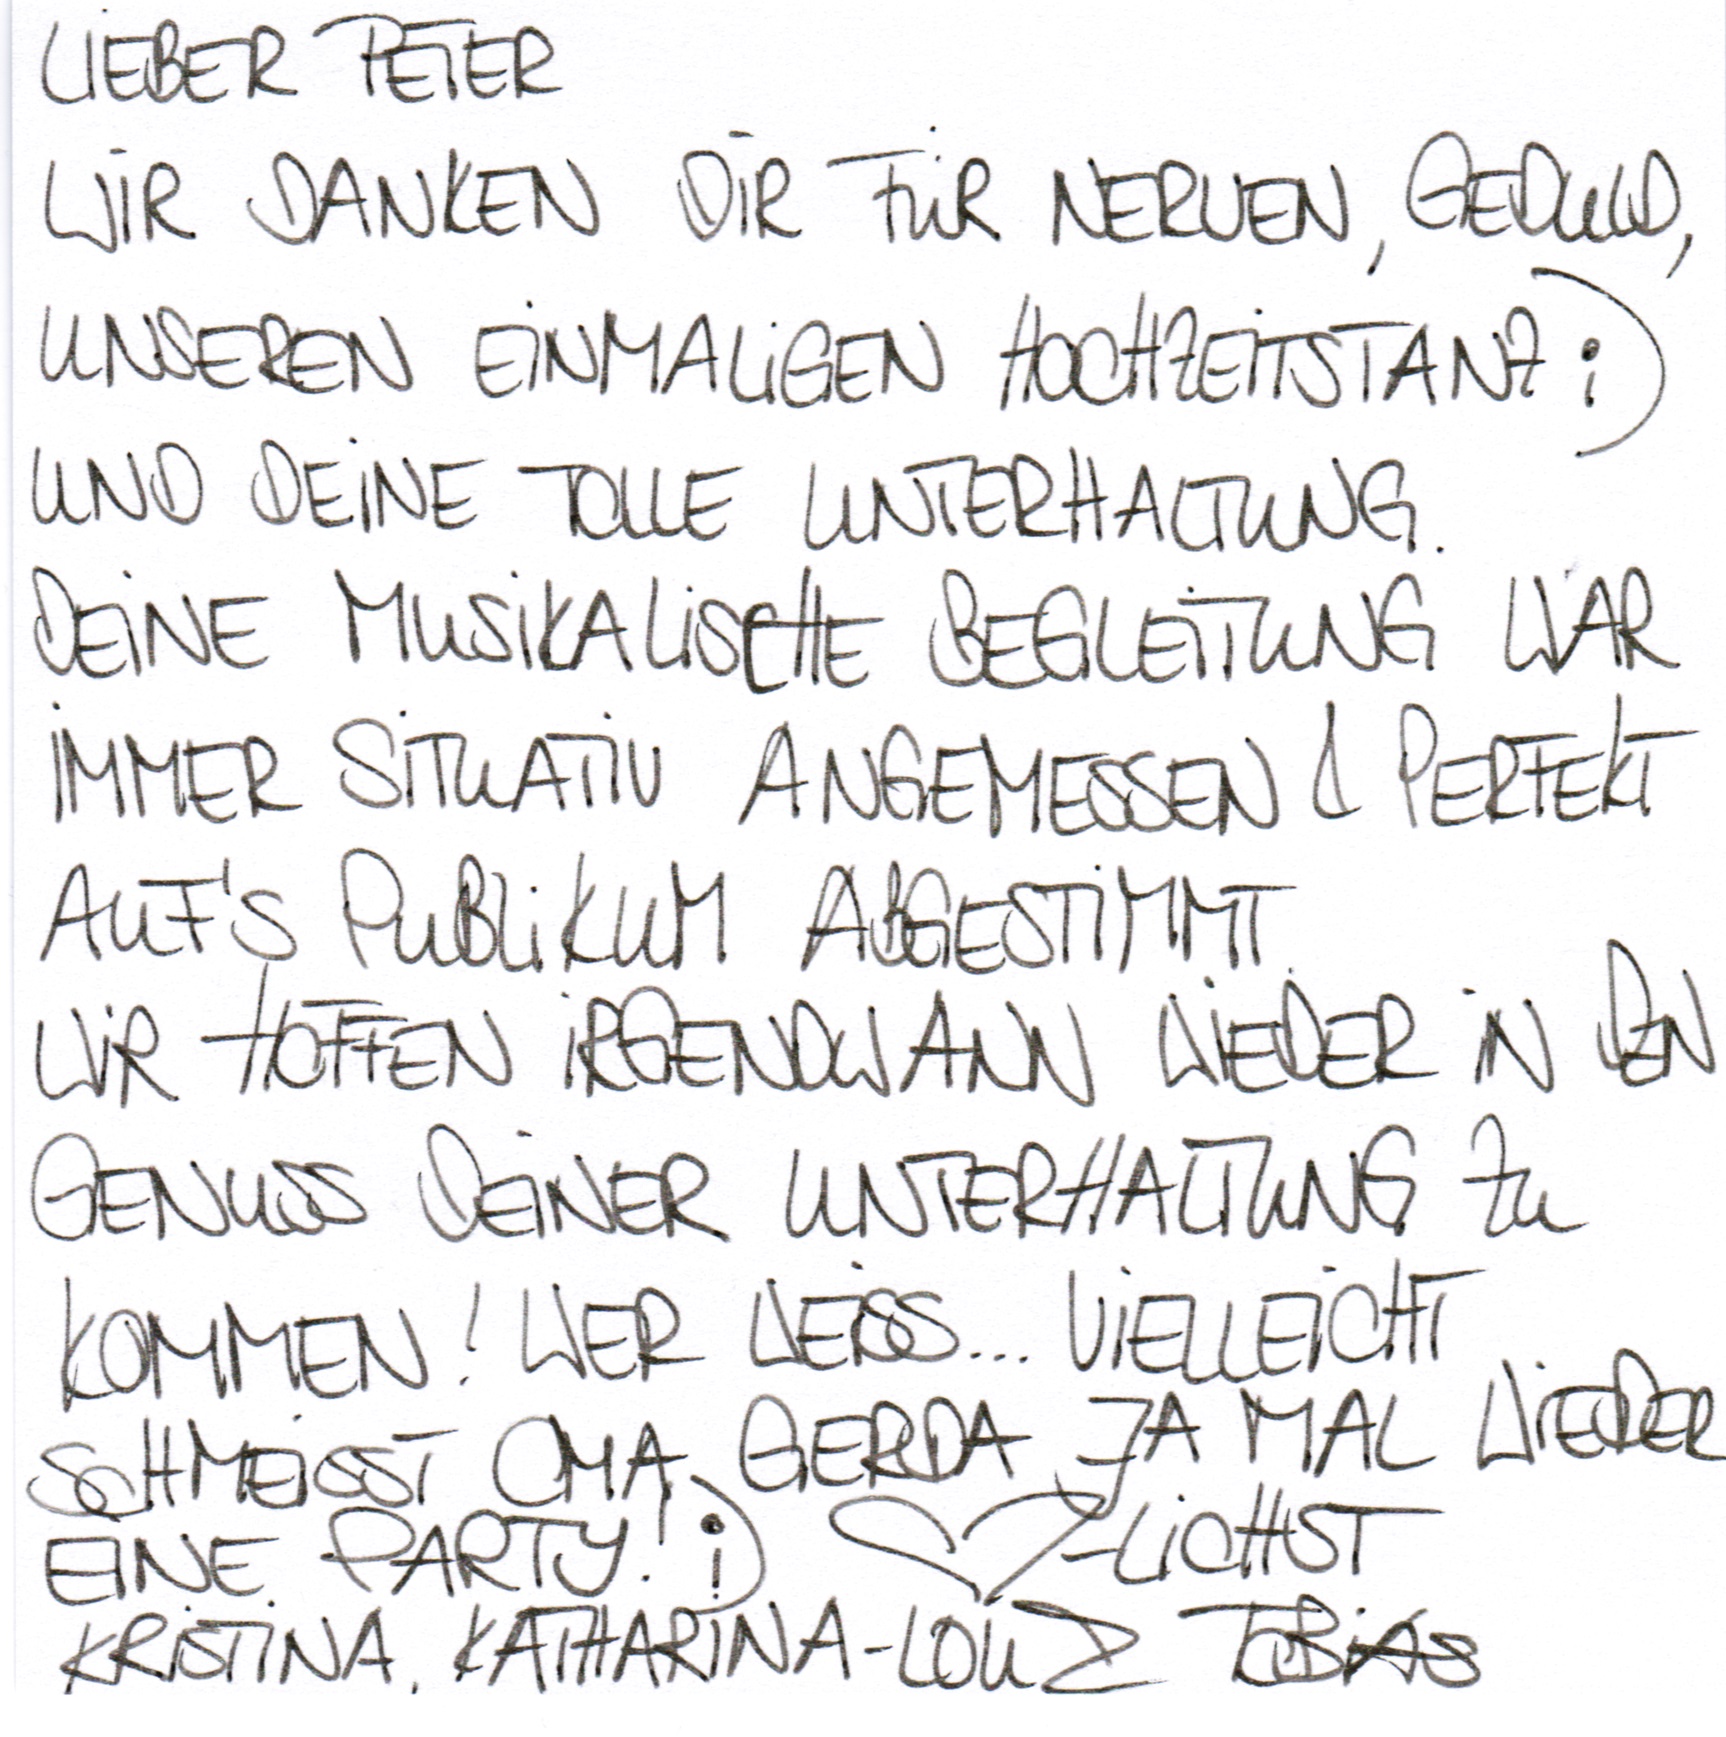 LIEBER PETER
WIR DANKEN DIR FÜR NERVEN, GEDULD,
UNSEREN EINMALIGEN HOCHZEITSTANZ ;)
UND DEINE TOLLE UNTERHALTUNG.
DEINE MUSIKALISCHE BEGLEITUNG WAR
IMMER SITUATIV ANGEMESSEN & PERFEKT
AUF'S PUBLIKUM ABGESTIMMT.
WIR HOFFEN IRGENDWANN WIEDER IN DEN
GENUSS DEINER UNTERHALTUNG ZU
KOMMEN! WER WEISS... VIELLEICHT
SCHMEISST OMA GERDA JA MAL WIEDER
EINE PARTY! ;) ♡-LICHST
KRISTINA, KATHARINA-LOU & TOBIAS